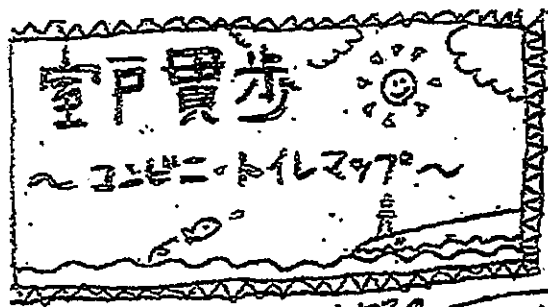 室戸貫歩
～コンビニ・トイレマップ～